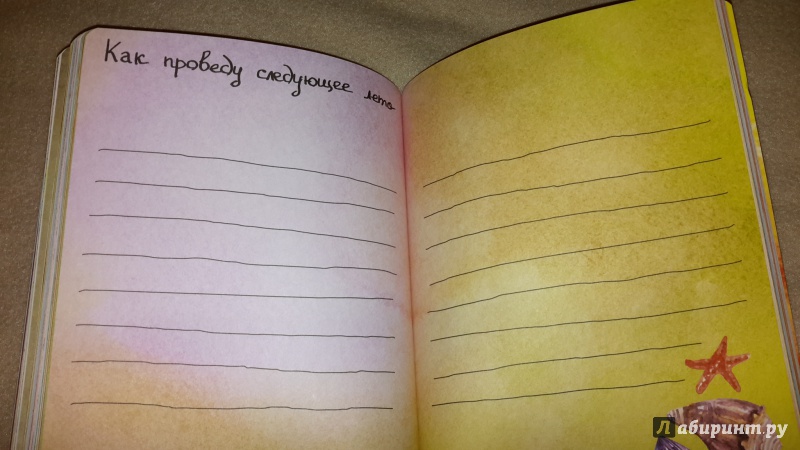 Как проведу следующее лето
Лабиринт.ру